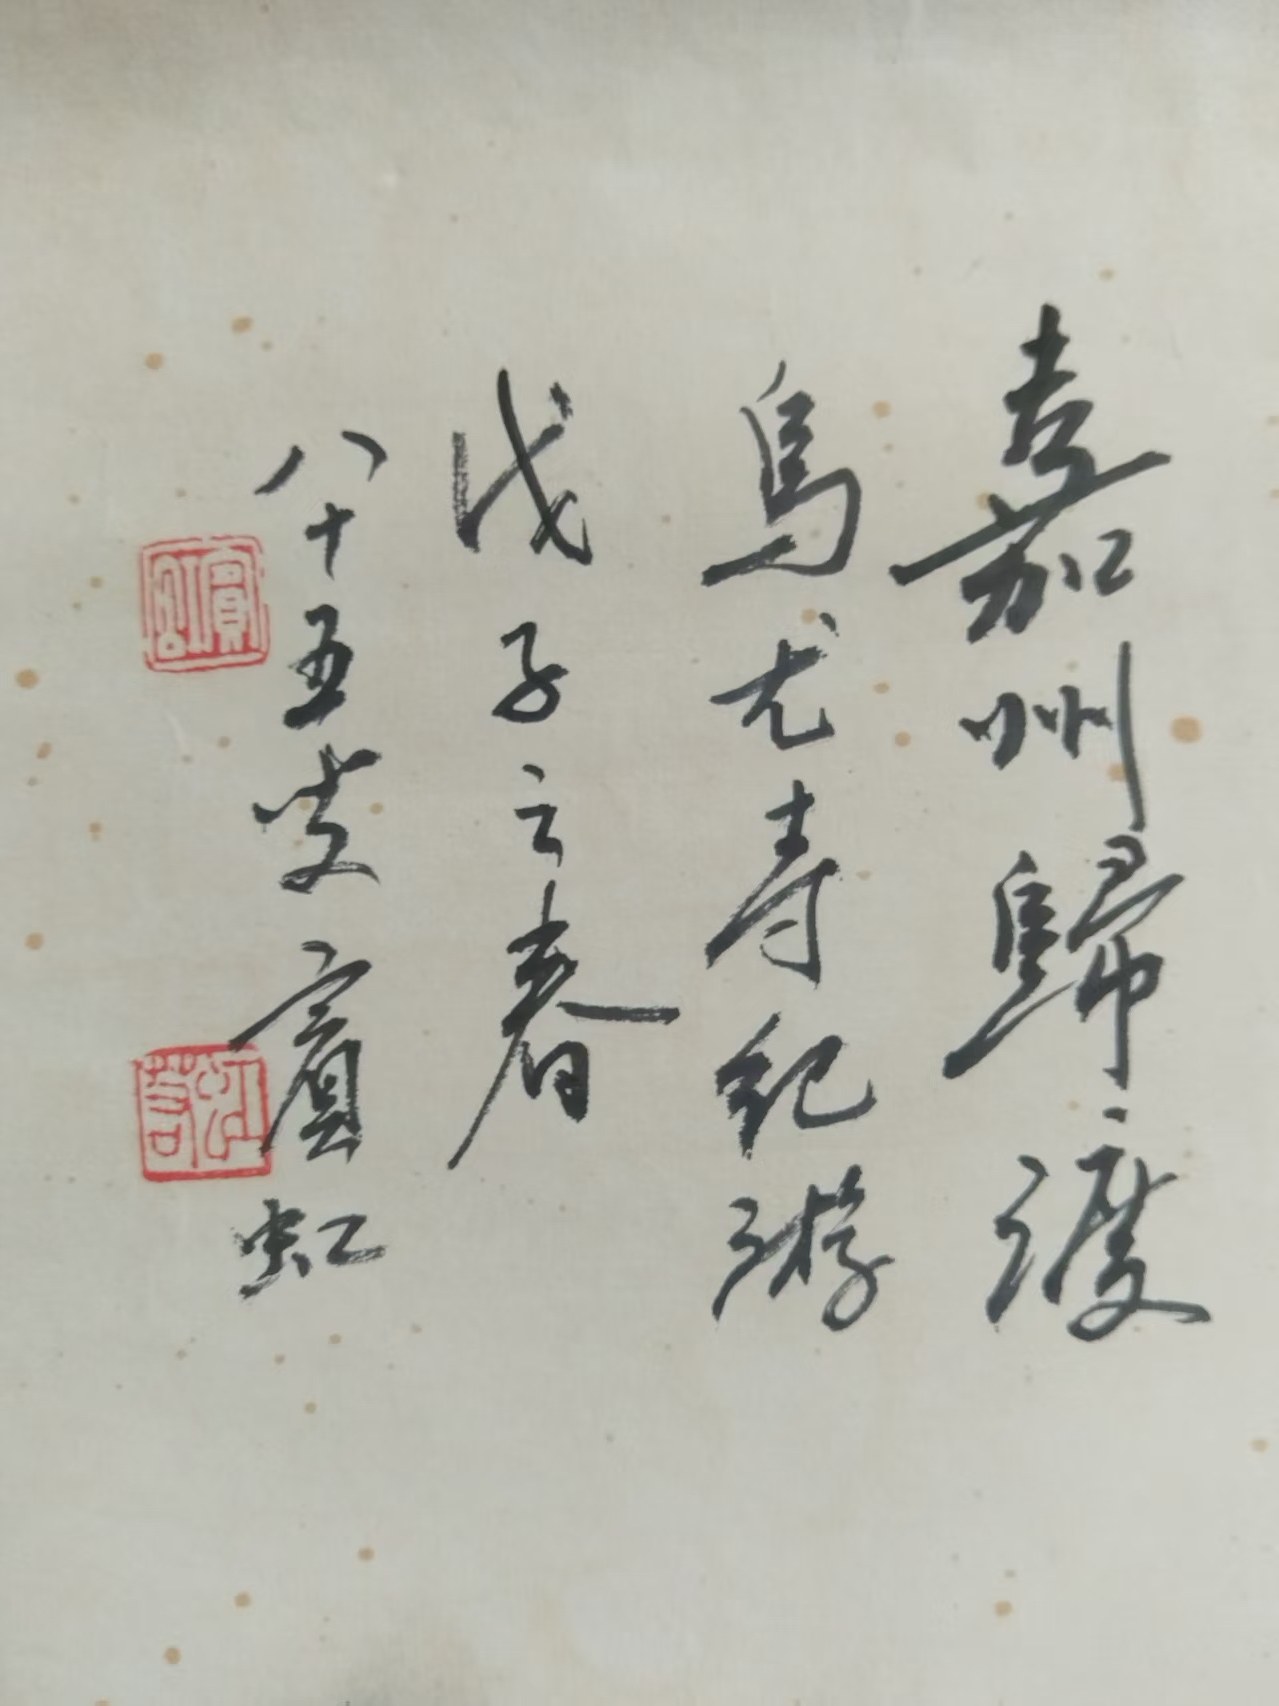 嘉州歸渡
烏尤寺紀游
戊子之春
八十五叟賓虹